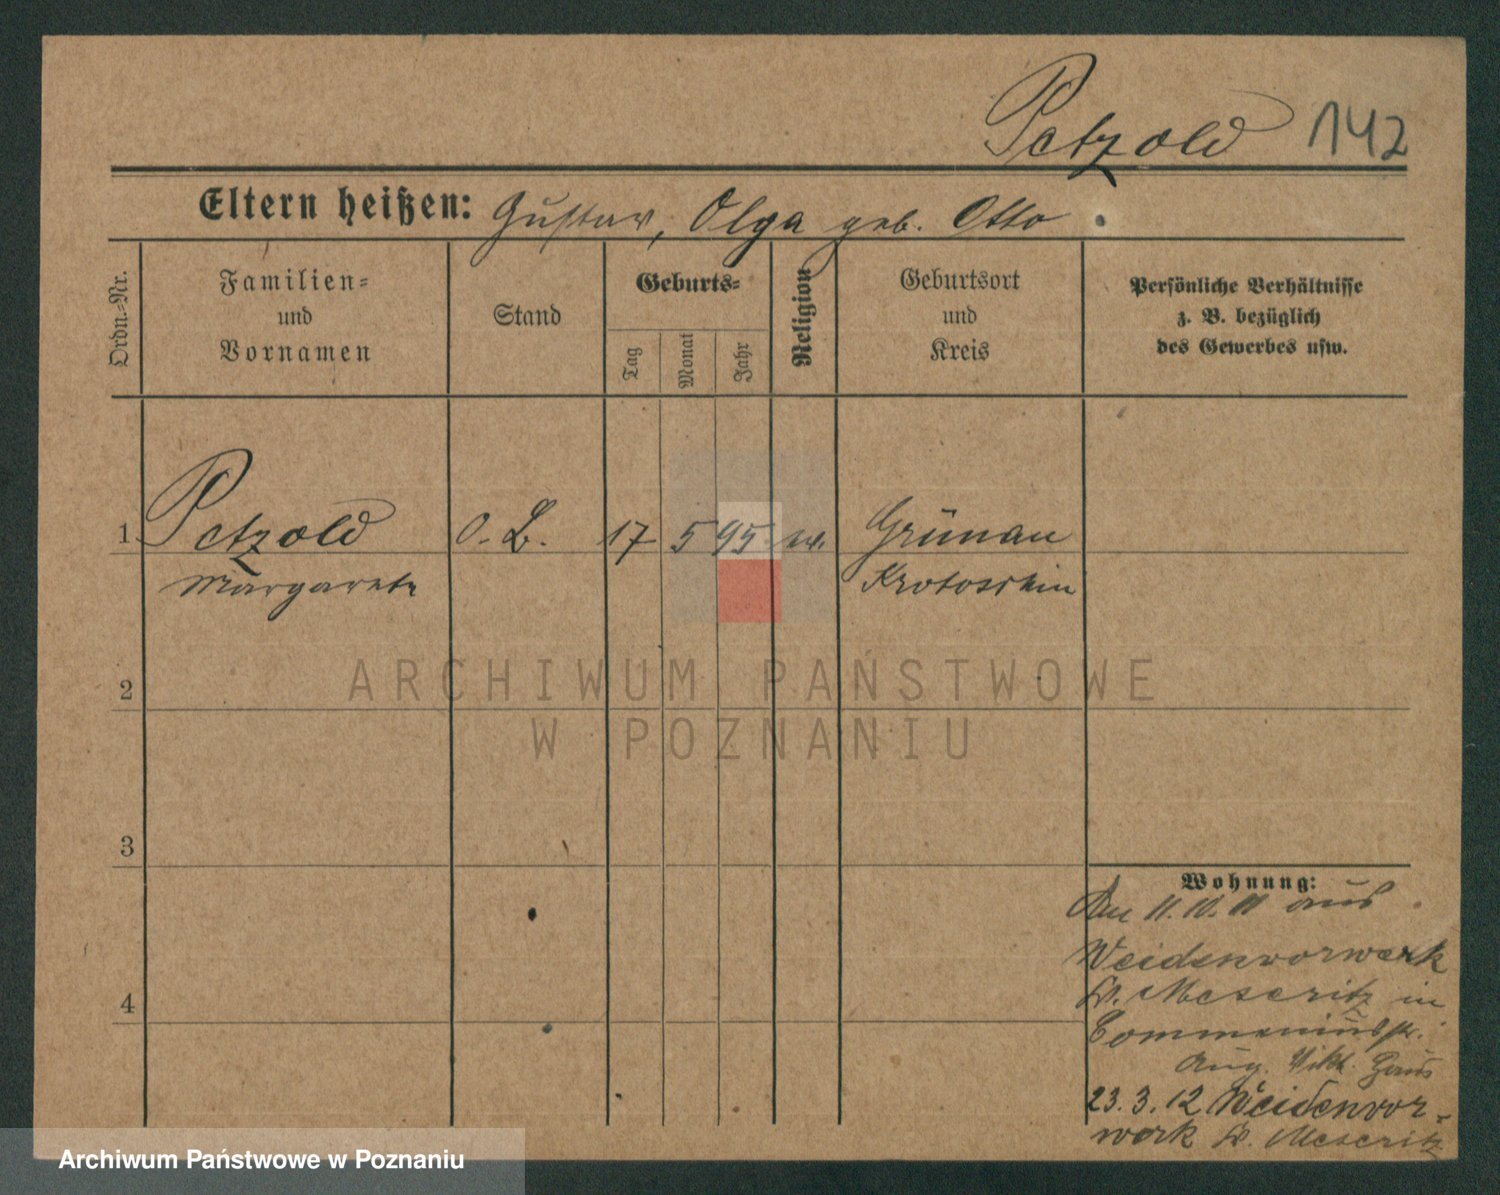 Petzold 142
Eltern heißen: Gustav, Olga geb. Otto
Ordn.-Nr.
Familien-
und
Vornamen
Stand
Geburts-
Tag
Monat
Jahr
Religion
Geburtsort
und
Kreis
Persönliche Verhältnisse
z. B. bezüglich
des Gewerbes usw.
1 Petzold O. L. 17 5 95 ev. Grünau
Margarete Krotoschin
ARCHIWUM PAŃSTWOWE
W POZNANIU
2
3
4
Wohnung:
11. 10. 11 aus
Weidenvorwerk
Kr. Meseritz in
Commeniusstr.
Aug. Vikt. Haus
23. 3. 12 Weidenvor-
werk Kr. Meseritz
Archiwum Państwowe w Poznaniu